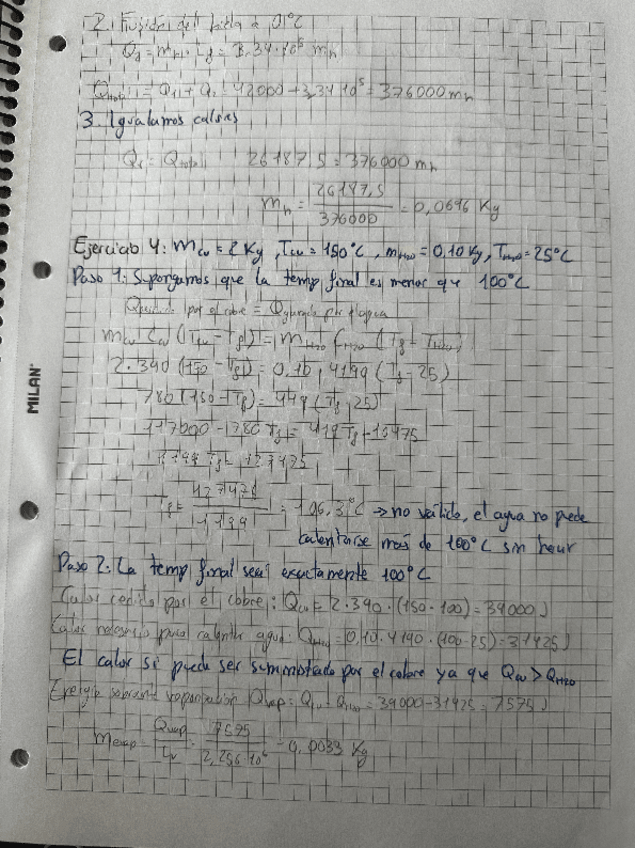 2. Fusión del hielo a 0°C
Q2 = mH · Lf = 3.34·10⁵ mh
Qtotal = Q1 + Q2 = 42000 + 3,34·10⁵ = 376000 mh
3. Igualamos calores
Q1 = Qtotal 26187,5 = 376000 mh
mh = 26187,5 / 376000 = 0,0696 Kg
Ejercicio 4: mcu = 2 Kg, Tcu = 150°C, mH2O = 0,10 Kg, TH2O = 25°C
Paso 1: Supongamos que la temp final es menor que 100°C
Qperdido por el cobre = Qganado por el agua
mcu Ccu (Tcu - Tf) = mH2O CH2O (Tf - TH2O)
2·390 (150 - Tf) = 0,10 · 4190 (Tf - 25)
780 (150 - Tf) = 419 (Tf - 25)
117000 - 780 Tf = 419 Tf - 10475
1199 Tf = 127475
Tf = 127475 / 1199 = 106,3°C → no válido, el agua no puede
calentarse más de 100°C sin hervir
Paso 2: La temp final será exactamente 100°C
Calor cedido por el cobre: Qcu = 2·390·(150-100) = 39000 J
Calor necesario para calentar agua: QH2O = 0,10·4190·(100-25) = 31425 J
El calor si puede ser suministrado por el cobre ya que Qcu > QH2O
Energía sobrante vaporización Qvap: Qcu - QH2O = 39000 - 31425 = 7575 J
mevap = Qvap / Lv = 7575 / 2,256·10⁶ = 0,0033 Kg
MILAN